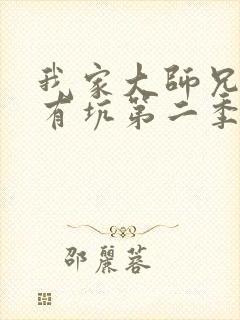 我家大師兄
有坑第二季
邵麗蓉